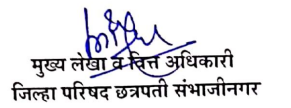 मुख्य लेखा व वित्त अधिकारी
जिल्हा परिषद छत्रपती संभाजीनगर